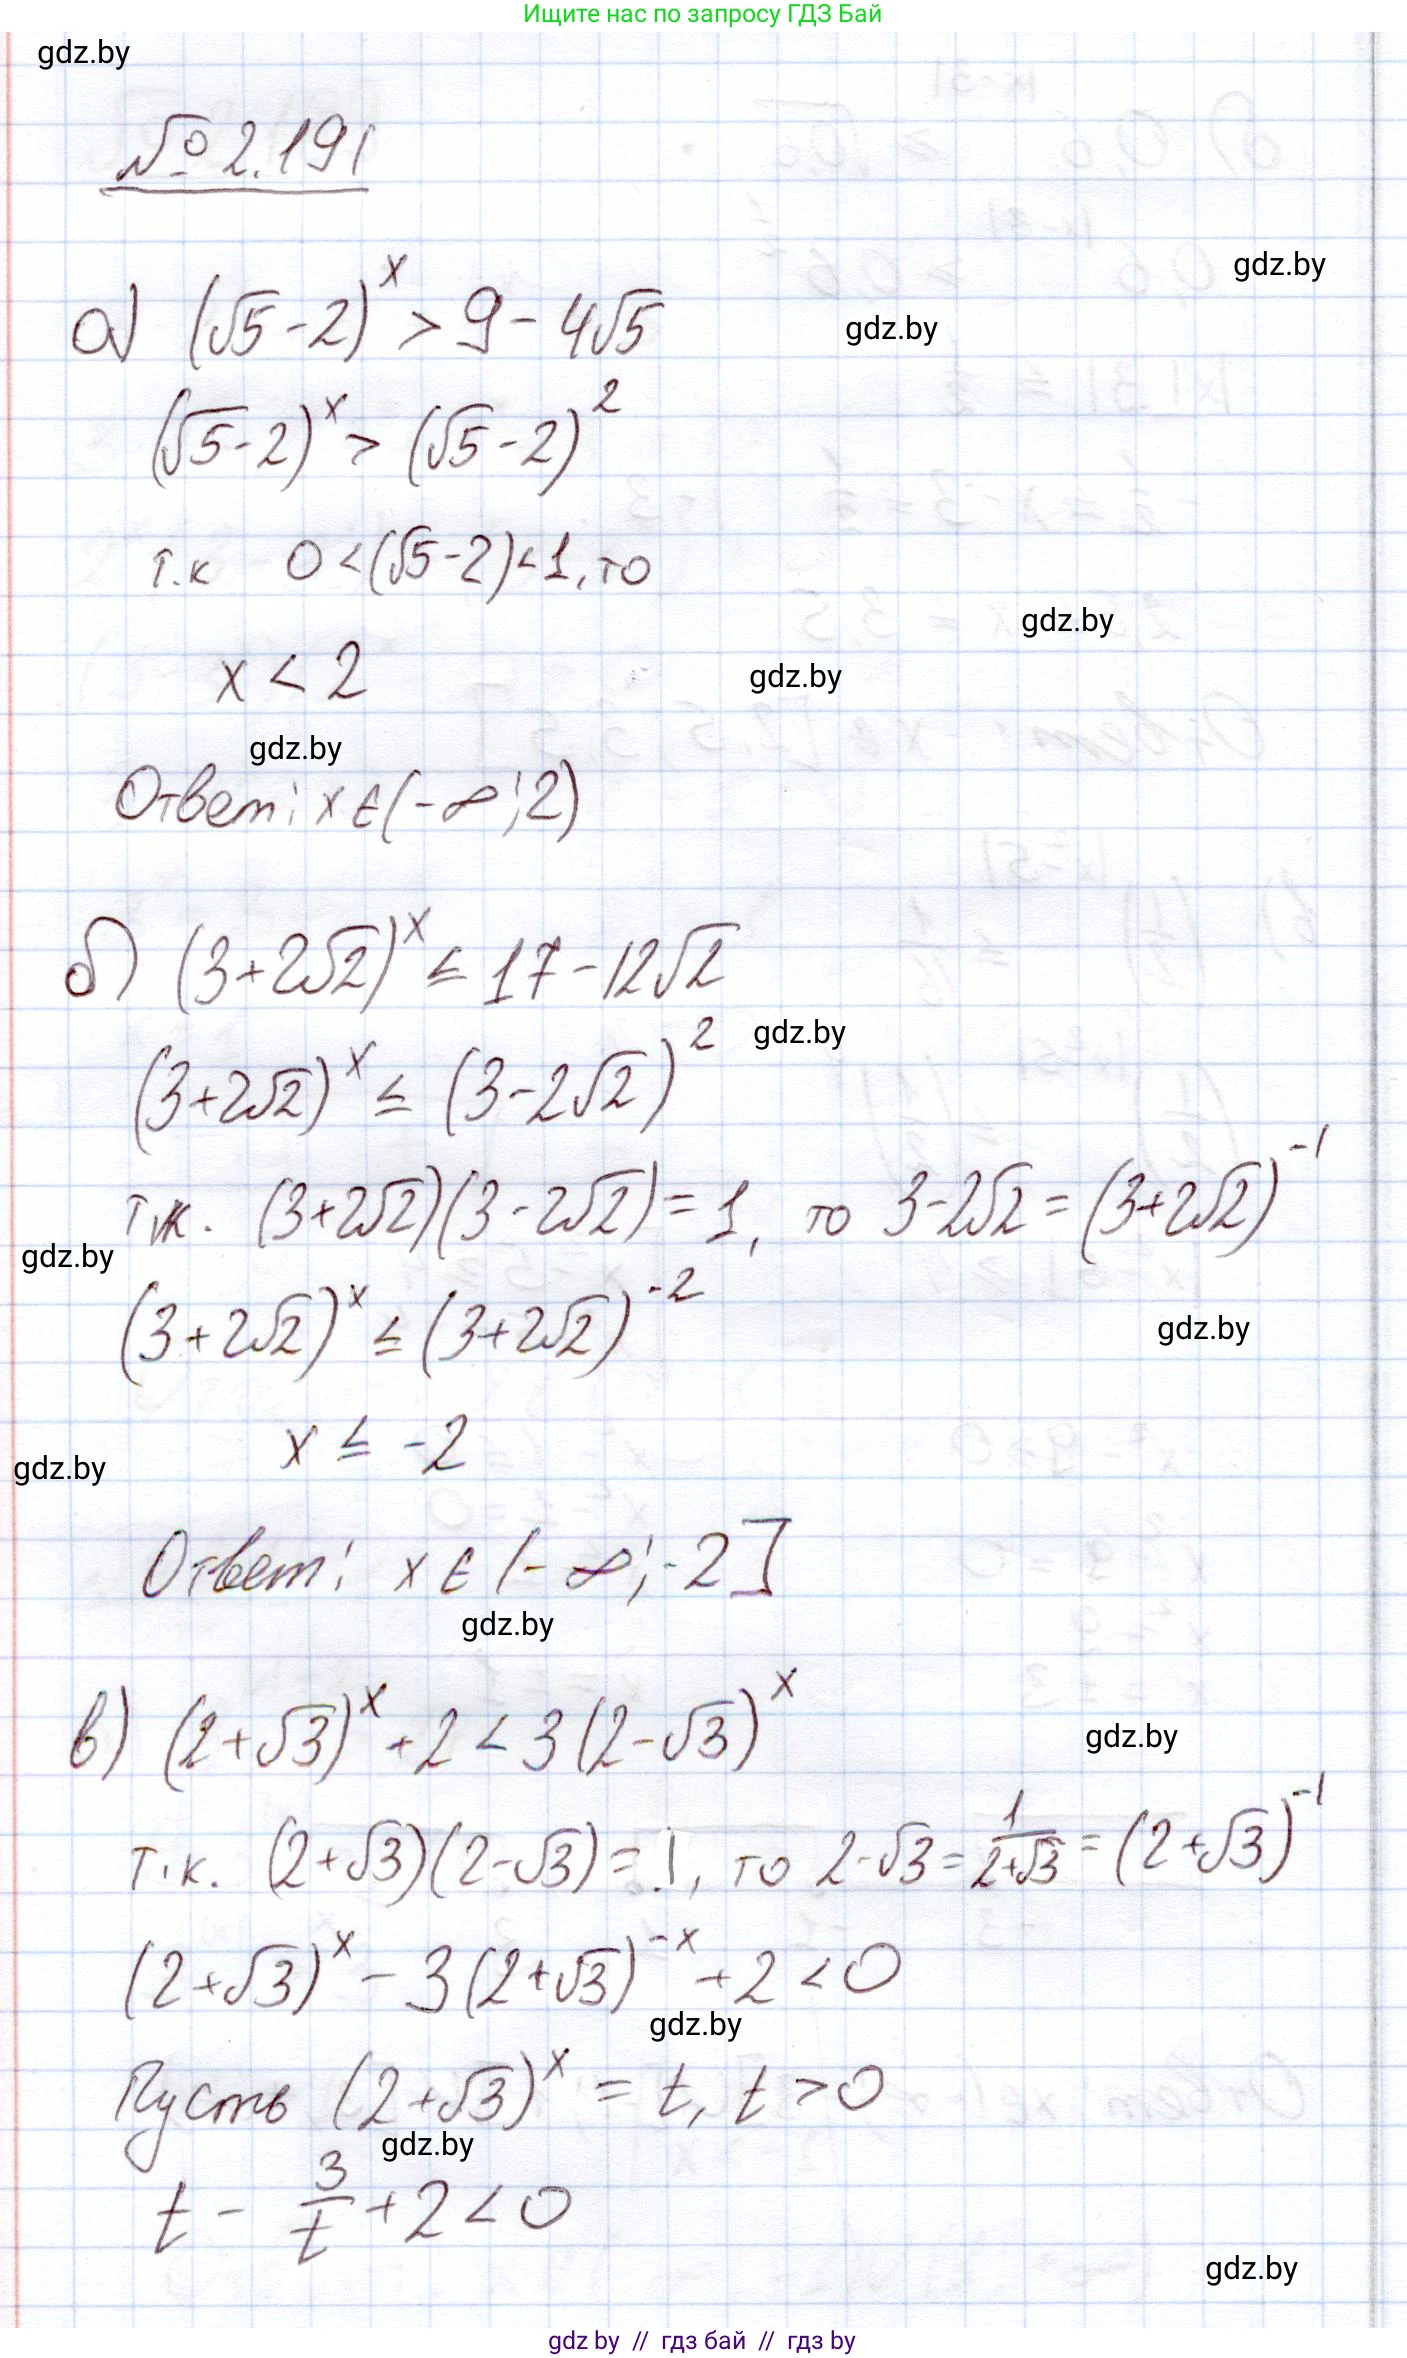 Ищите нас по запросу ГДЗ Бай
gdz.by
№ 2.191
gdz.by
а) (√5-2)^x > 9-4√5
gdz.by
(√5-2)^x > (√5-2)^2
т.к 0<(√5-2)<1, то
gdz.by
x < 2
gdz.by
gdz.by
Ответ: x∈(-∞;2)
б) (3+2√2)^x ≤ 17-12√2
gdz.by
(3+2√2)^x ≤ (3-2√2)^2
т.к. (3+2√2)(3-2√2)=1, то 3-2√2=(3+2√2)^-1
gdz.by
(3+2√2)^x ≤ (3+2√2)^-2
gdz.by
x ≤ -2
gdz.by
Ответ: x∈(-∞;-2]
gdz.by
в) (2+√3)^x+2<3(2-√3)^x
gdz.by
т.к. (2+√3)(2-√3)=1, то 2-√3=1/(2+√3)=(2+√3)^-1
(2+√3)^x-3(2+√3)^-x+2<0
gdz.by
Пусть (2+√3)^x=t, t>0
gdz.by
t - 3/t +2<0
gdz.by
gdz by // гдз бай // гдз by